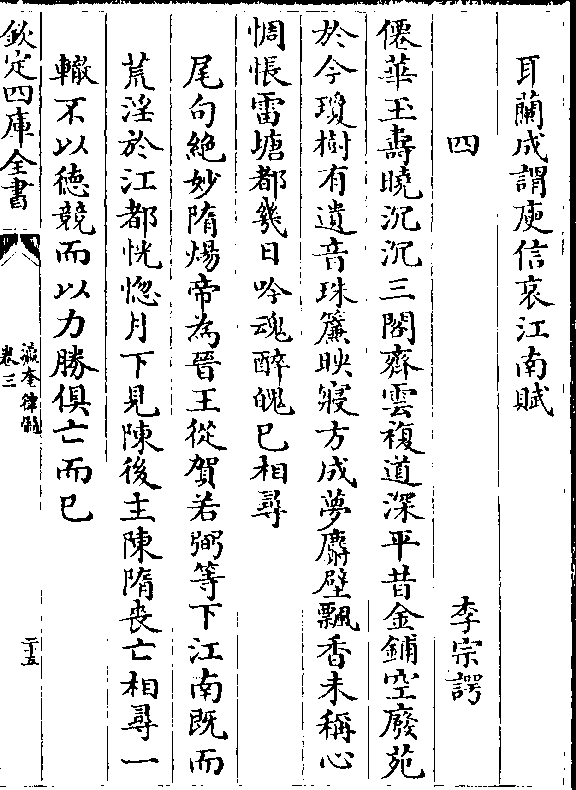 耳蘭成謂庾信哀江南賦
四　李宗諤
僊華玉壽曉沉沉三閣齊雲複道深平昔金鋪空廢苑
於今瓊樹有遺音珠簾映寢方成夢麝壁飄香未稱心
惆悵雷塘都幾日吟魂醉魄已相尋
尾句絶妙隋煬帝為晉王從賀若弼等下江南既而
荒淫於江都恍惚月下見陳後主陳隋喪亡相尋一
轍不以德競而以力勝俱亡而已
欽定四庫全書
瀛奎律髓
卷三
二十五